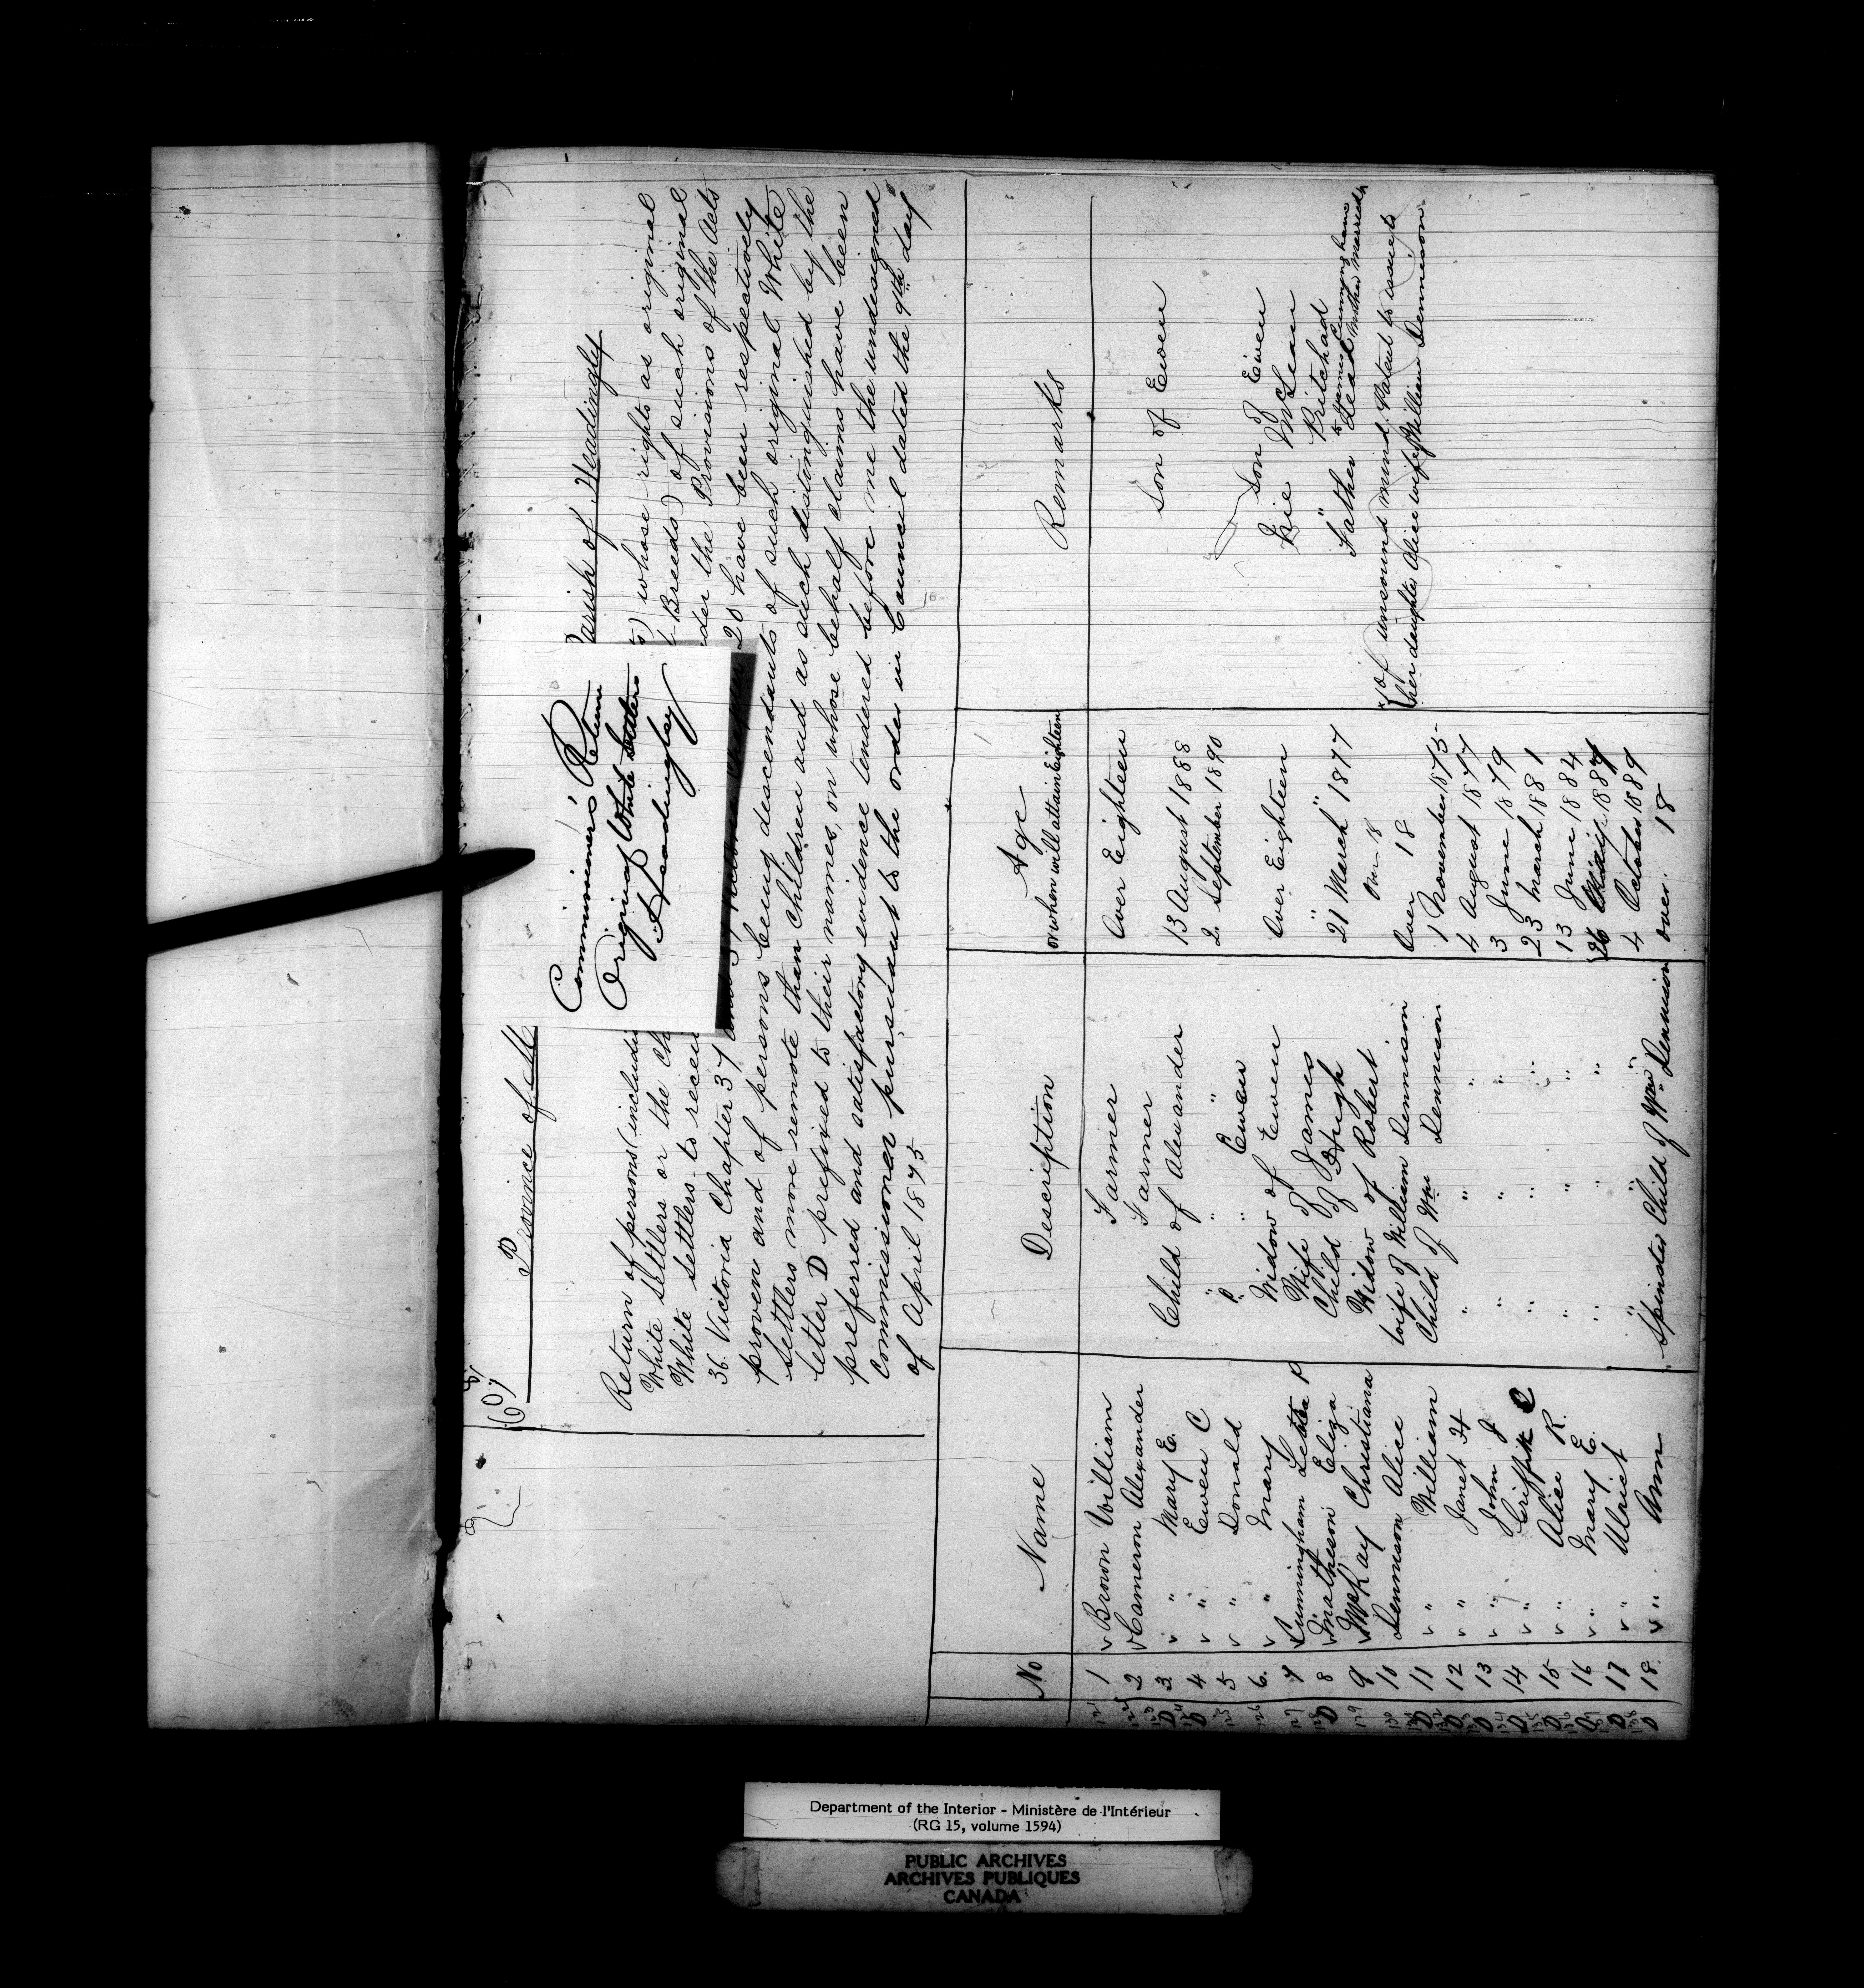 Province of M
Parish of Headingly
Commissioners' Return
Original White Settlers
Headingley
Return of persons (includin
) whose rights as original
White Settlers or the Ch
Breeds) of such original
White Settlers to receiv
under the Provisions of the Acts
36. Victoria Chapter 37 and 37 Victoria Chapter 20 have been respectively
proven and of persons being descendants of such original White
Settlers more remote than children and as such distinguished by the
letter D prefixed to their names, on whose behalf claims have been
preferred and satisfactory evidence tendered before me the undersigned
Commissioner pursuant to the order in Council dated the 9th day
of April 1875
No Name Description Age or when will attain Eighteen Remarks
1 Brown William Farmer Over Eighteen
2 Cameron Alexander Farmer
D 3 " Mary E. Child of Alexander 13 August 1888
D 4 " Ewen C " " " 2 September 1890 Son of Ewen
5 " Donald " Ewen
6. " Mary Widow of Ewen Over Eighteen Son of Ewen
7 Cunningham Letitia P Wife of James " Née McLean
D 8 Matheson Eliza Child of Hugh 21 March 1877 " Pritchard
9 McKay Christiana Widow of Robert Over 18 Father Dead Mother Married
to James Cunningham
10 Dennison Alice Wife of William Dennison Over 18 of unsound mind. Patent to issue to
her daughter Alice wife of William Dennison
D 11 " William Child of Wm Dennison 1 November 1875
D 12 " Janet H " " " 4 August 1877
D 13 " John J " " " 3 June 1879
D 14 " Griffith C " " " 23 March 1881
D 15 " Alice R. " " " 13 June 1884
D 16 " Mary E. " " " 26 1887
D 17 " " 4 October 1889
D 18. " Ann Spinster Child of Wm Dennison over 18
Department of the Interior - Ministère de l'Intérieur
(RG 15, volume 1594)
PUBLIC ARCHIVES
ARCHIVES PUBLIQUES
CANADA